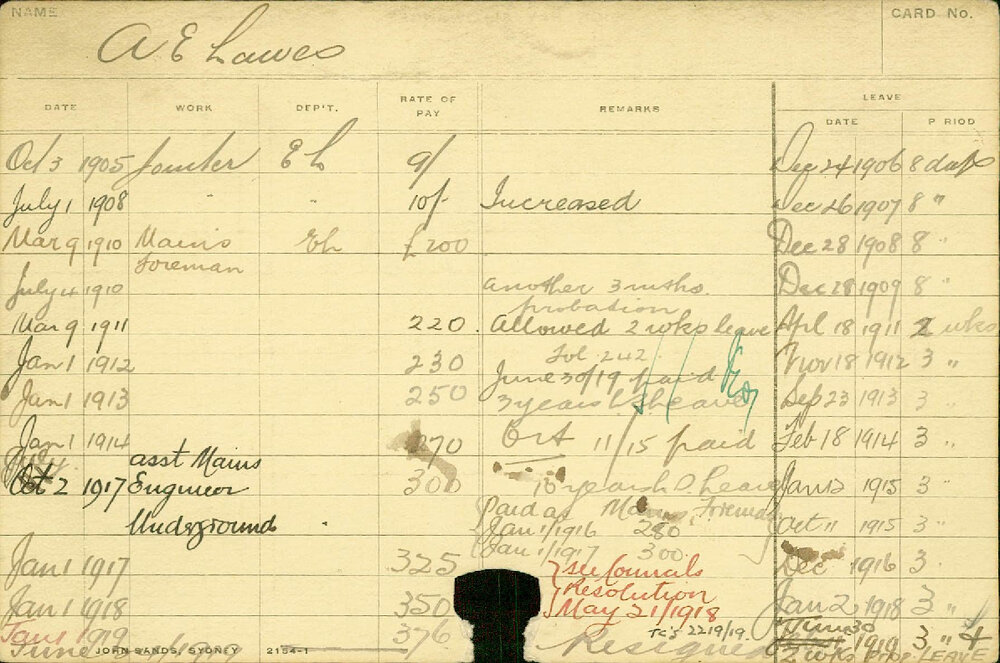 NAME
CARD No.
A E Lawes
DATE WORK DEP'T. RATE OF PAY REMARKS LEAVE
DATE P RIOD
Oct 3 1905 Jointer E L 9/ Dec 24 1906 8 days
July 1 1908 " " 10/- Increased Dec 26 1907 8 "
Mar 9 1910 Mains EL £200 Dec 28 1908 8 "
foreman
July 4 1910 another 3 mths. Dec 28 1909 8 "
probation
Mar 9 1911 220. Allowed 2 wks leave Apl 18 1911 2 wks
Jan 1 1912 230 Fol 242 Nov 18 1912 3 "
June 30/19 paid
Jan 1 1913 250 3 years leave Sep 23 1913 3 "
Jan 1 1914 270 Oct 11/15 paid Feb 18 1914 3 "
asst Mains
Oct 2 1917 Engineer 300 10 years leave Jan 1915 3 "
Underground Paid as Mains Foreman Oct 11 1915 3 "
Jan 1/1916 280
Jan 1/1917 300
Jan 1 1917 325 see Councils Dec 1916 3 "
Resolution
Jan 1 1918 350 May 21/1918 Jan 2 1918 3 "
Jan 1 1919 376 Resigned TC's 2219/19. June 30 1919 3 " 4
June
JOHN SANDS, SYDNEY 2154-1
3 wks PROP LEAVE